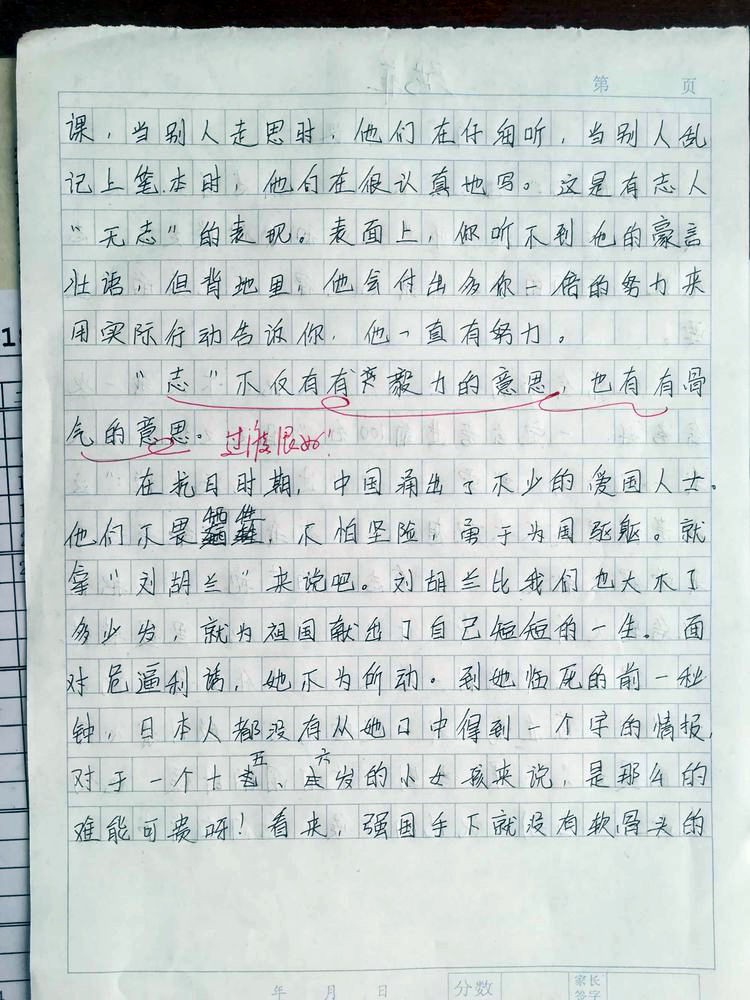 第 页
课，当别人走思时，他们在仔细听，当别人乱
记上笔本时，他们在很认真地写。这是有志人
“无志”的表现。表面上，你听不到他的豪言
壮语，但背地里，他会付出多你一倍的努力来
用实际行动告诉你，他一直有努力。
“志”不仅有有毅力的意思，也有有骨
气的意思。 过渡很好！
在抗日时期，中国涌出了不少的爱国人士。
他们不畏牺牲，不怕坚险，勇于为国驱躯。就
拿“刘胡兰”来说吧。刘胡兰比我们也大不了
多少岁，就为祖国献出了自己短短的一生。面
对危逼利诱，她不为所动。到她临死的前一秒
钟，日本人都没有从她口中得到一个字的情报，
对于一个十五、六岁的小女孩来说，是那么的
难能可贵呀！看来，强国手下就没有软骨头的
年 月 日 分数 家长
签字